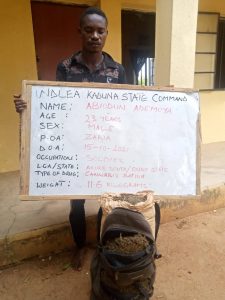 NDLEA KADUNA STATE COMMAND
NAME: ABIODUN ADEMOYA
AGE: 23 YEARS
SEX: MALE
P.O.A: ZARIA
D.O.A: 15-10-2021
OCCUPATION: SOLDIER
LGA/STATE: STATE
TYPE OF DRUG: CANNABIS SATIVA
WEIGHT: 11.6 KILOGRAMS